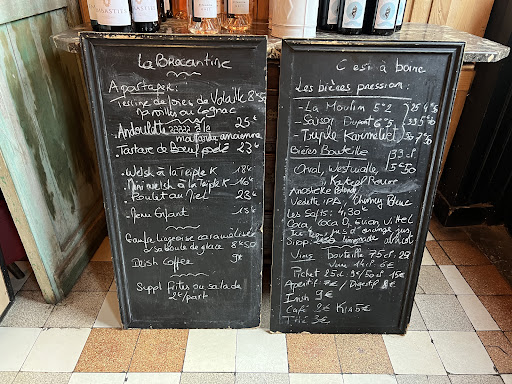 La Brocantine
A partager:
Terrine de foies de Volaille 8€50
girolles au Cognac
Andouillette AAAAA à la 25€
moutarde ancienne
Tartare de Boeuf poêlé 23€
Welsh à la Triple K 18€
Mini welsh à la Triple K 16€
Poulet au Miel 23€
Menu Enfant 15€
Gaufre Liégeoise caramélisée
sa boule de glace 8€50
Irish Coffee 9€
Suppl frites ou salade
2€/part
C'est à boire
Les bières pression:
La Moulin 5°2
Saison Dupont 6°5
Triple Karmeliet
Bières Bouteille 33cl
Orval, Westmalle, 5€50
Anosteké Blonde
Vedette IPA, Chimay Bleue
Les Softs: 4,30
Coca, Coca 0, Evian, Vittel
Ice tea, jus d'orange, jus
Sirop: limonade
Vins: bouteille 75cl
Verre 14cl 6€
Pichet 25cl 9€/50cl 15€
Apéritif 7€ / Digestif 8€
Irish 9€
Café 2€ Kir 5€
Thé 3€